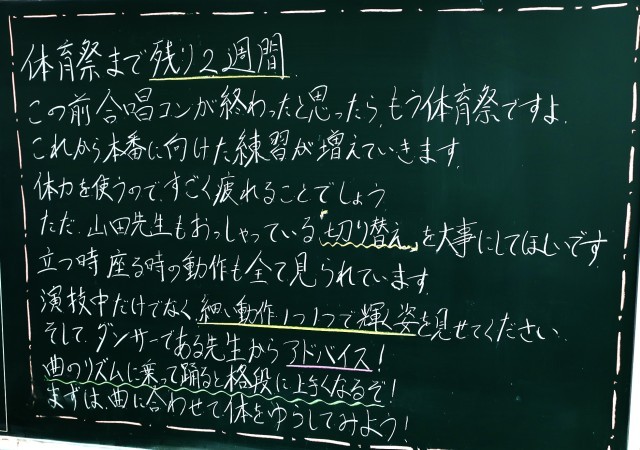 体育祭まで残り2週間
この前合唱コンが終わったと思ったら、もう体育祭ですよ。
これから本番に向けた練習が増えていきます。
体力を使うので、すごく疲れることでしょう
ただ、山田先生もおっしゃっている"切り替え"を大事にしてほしいです
立つ時座る時の動作も全て見られています。
演技中だけでなく、細い動作1つ1つで輝く姿を見せてください。
そして、ダンサーである先生からアドバイス!
曲のリズムに乗って踊ると格段に上手くなるぞ!
まずは、曲に合わせて体をゆらしてみよう!